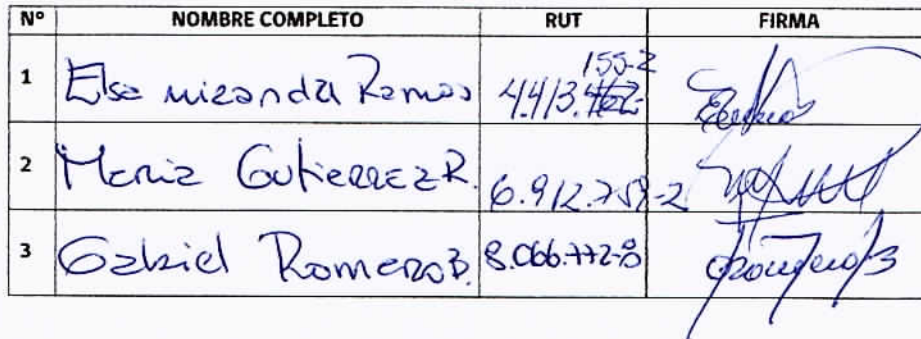 Nº NOMBRE COMPLETO RUT FIRMA
155-2
1 Elsa miranda Ramos 4.413.
2 Maria Gutierrez R. 6.912.759-2
3 Gabriel Romero B. 8.066.772-8